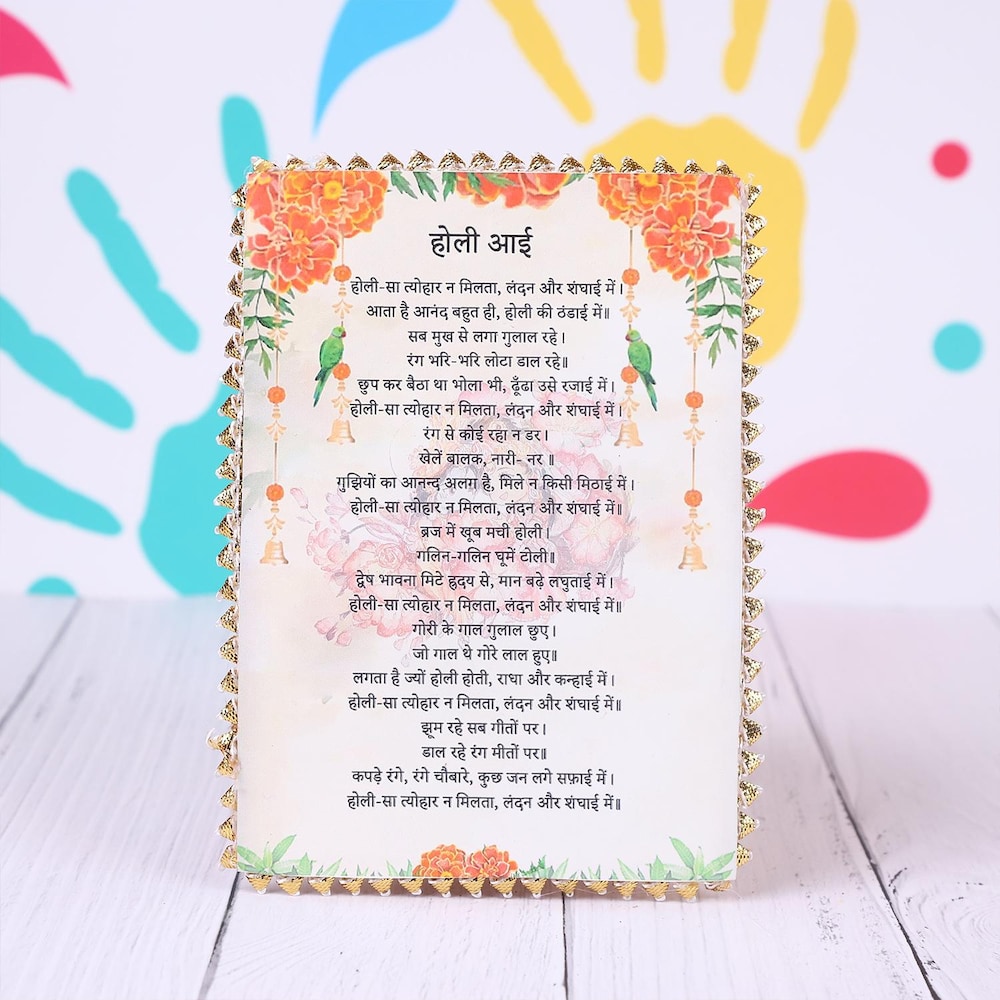 होली आई
होली-सा त्योहार न मिलता, लंदन और शंघाई में।
आता है आनंद बहुत ही, होली की ठंडाई में॥
सब मुख से लगा गुलाल रहे।
रंग भरि-भरि लोटा डाल रहे॥
छुप कर बैठा था भोला भी, ढूँढा उसे रजाई में।
होली-सा त्योहार न मिलता, लंदन और शंघाई में।
रंग से कोई रहा न डर।
खेलें बालक, नारी- नर ॥
गुझियों का आनन्द अलग है, मिले न किसी मिठाई में।
होली-सा त्योहार न मिलता, लंदन और शंघाई में॥
ब्रज में खूब मची होली।
गलिन-गलिन घूमें टोली॥
द्वेष भावना मिटे हृदय से, मान बढ़े लघुताई में।
होली-सा त्योहार न मिलता, लंदन और शंघाई में॥
गोरी के गाल गुलाल छुए।
जो गाल थे गोरे लाल हुए॥
लगता है ज्यों होली होती, राधा और कन्हाई में।
होली-सा त्योहार न मिलता, लंदन और शंघाई में॥
झूम रहे सब गीतों पर।
डाल रहे रंग मीतों पर॥
कपड़े रंगे, रंगे चौबारे, कुछ जन लगे सफ़ाई में।
होली-सा त्योहार न मिलता, लंदन और शंघाई में॥